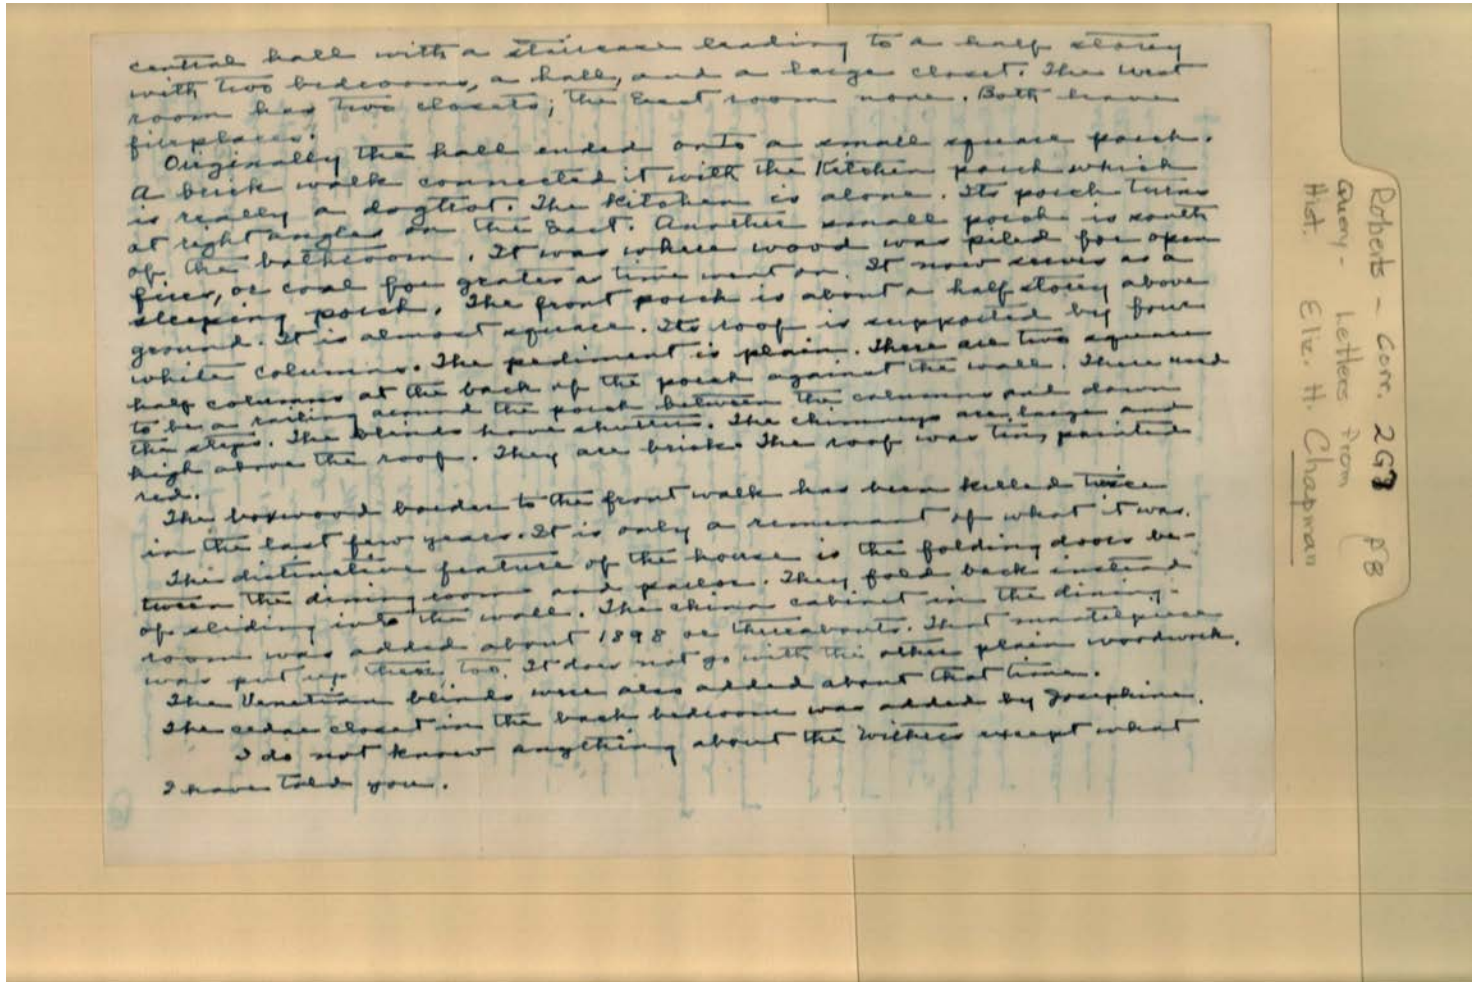 central hall with a staircase leading to a half storey
with two bedrooms, a hall, and a large closet. The west
room has two closets; the East room none. Both have
fireplaces.
Originally the hall ended onto a small square porch.
A brick walk connected it with the Kitchen porch which
is really a dogtrot. The kitchen is alone. Its porch turns
at right angles on the East. Another small porch is south
of the bathroom. It was where wood was piled for open
fires, or coal for grates as time went on. It now serves as a
sleeping porch. The front porch is about a half storey above
ground. It is almost square. Its roof is supported by four
white columns. The pediment is plain. There are two square
half columns at the back of the porch against the wall. There used
to be a railing around the porch between the columns and down
the steps. The blinds have shutters. The chimneys are large and
high above the roof. They are brick. The roof was tin, painted
red.
The boxwood border to the front walk has been killed twice
in the last few years. It is only a remenant of what it was.
The distinctive feature of the house is the folding doors be-
tween the dining room and parlor. They fold back instead
of sliding into the wall. The china cabinet in the dining-
room was added about 1898 or thereabouts. That mantelpiece
was put up then too. It does not go with the other plain woodwork.
The Venetian blinds were also added about that time.
The cedar closet in the back bedroom was added by Josephine.
I do not know anything about the Withers except what
I have told you.
Roberts - Corr. 2G7 f8
Query - Letters from
Hist. Eliz. H. Chapman